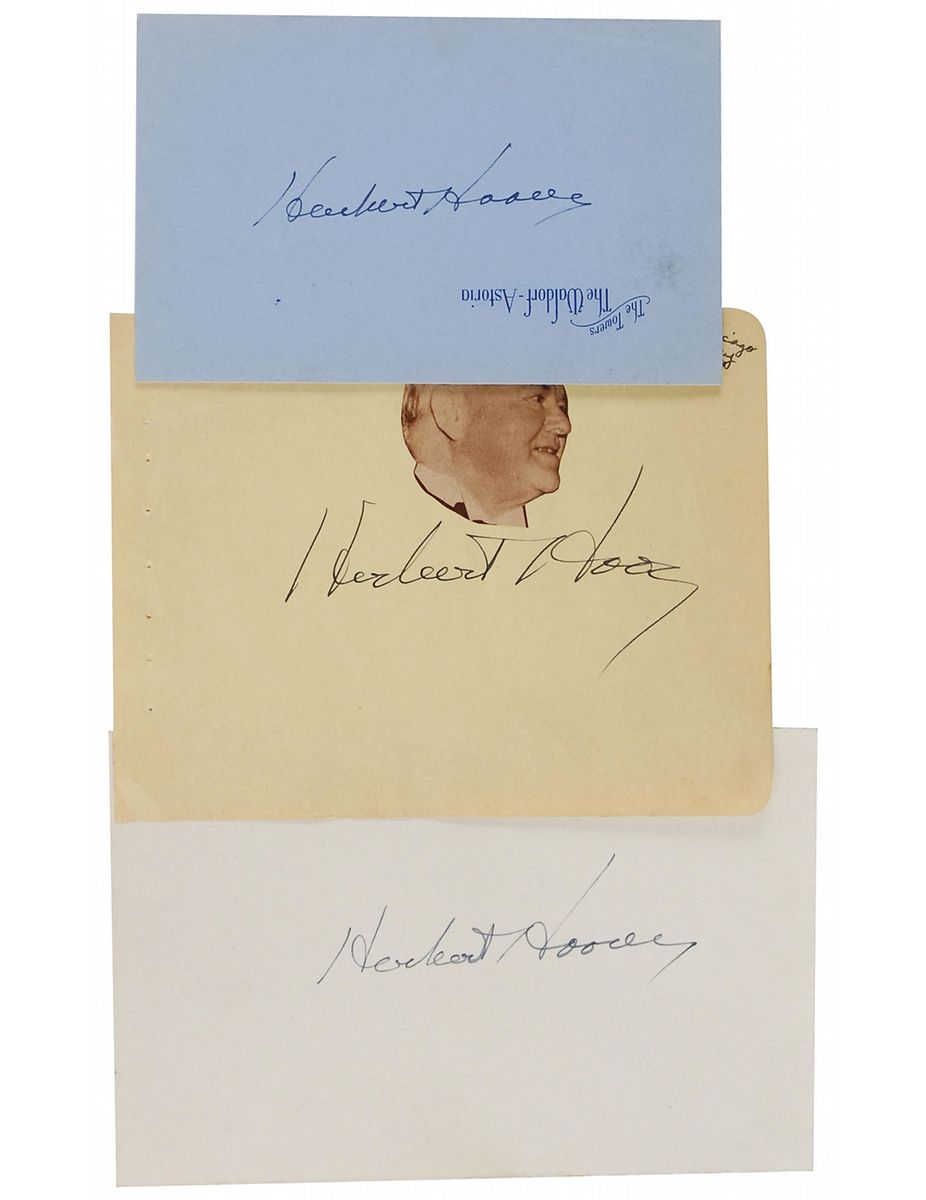 Herbert Hoover
The Towers
The Waldorf-Astoria
Herbert Hoover
Herbert Hoover